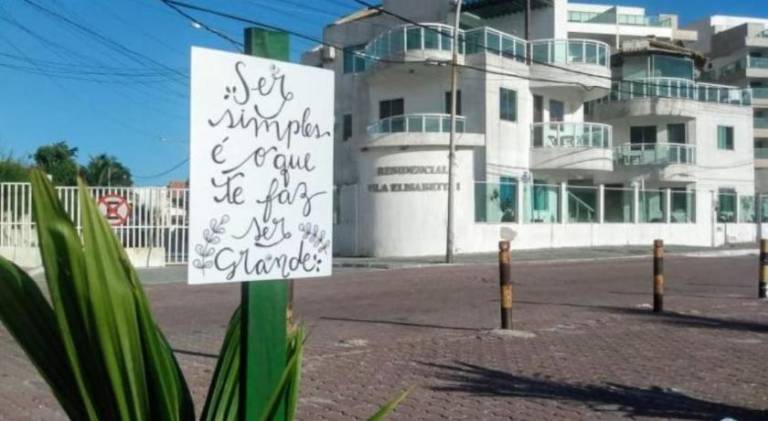 Ser
simples
é o que
te faz
ser
Grande.
RESIDENCIAL
VILA ELISABETH I